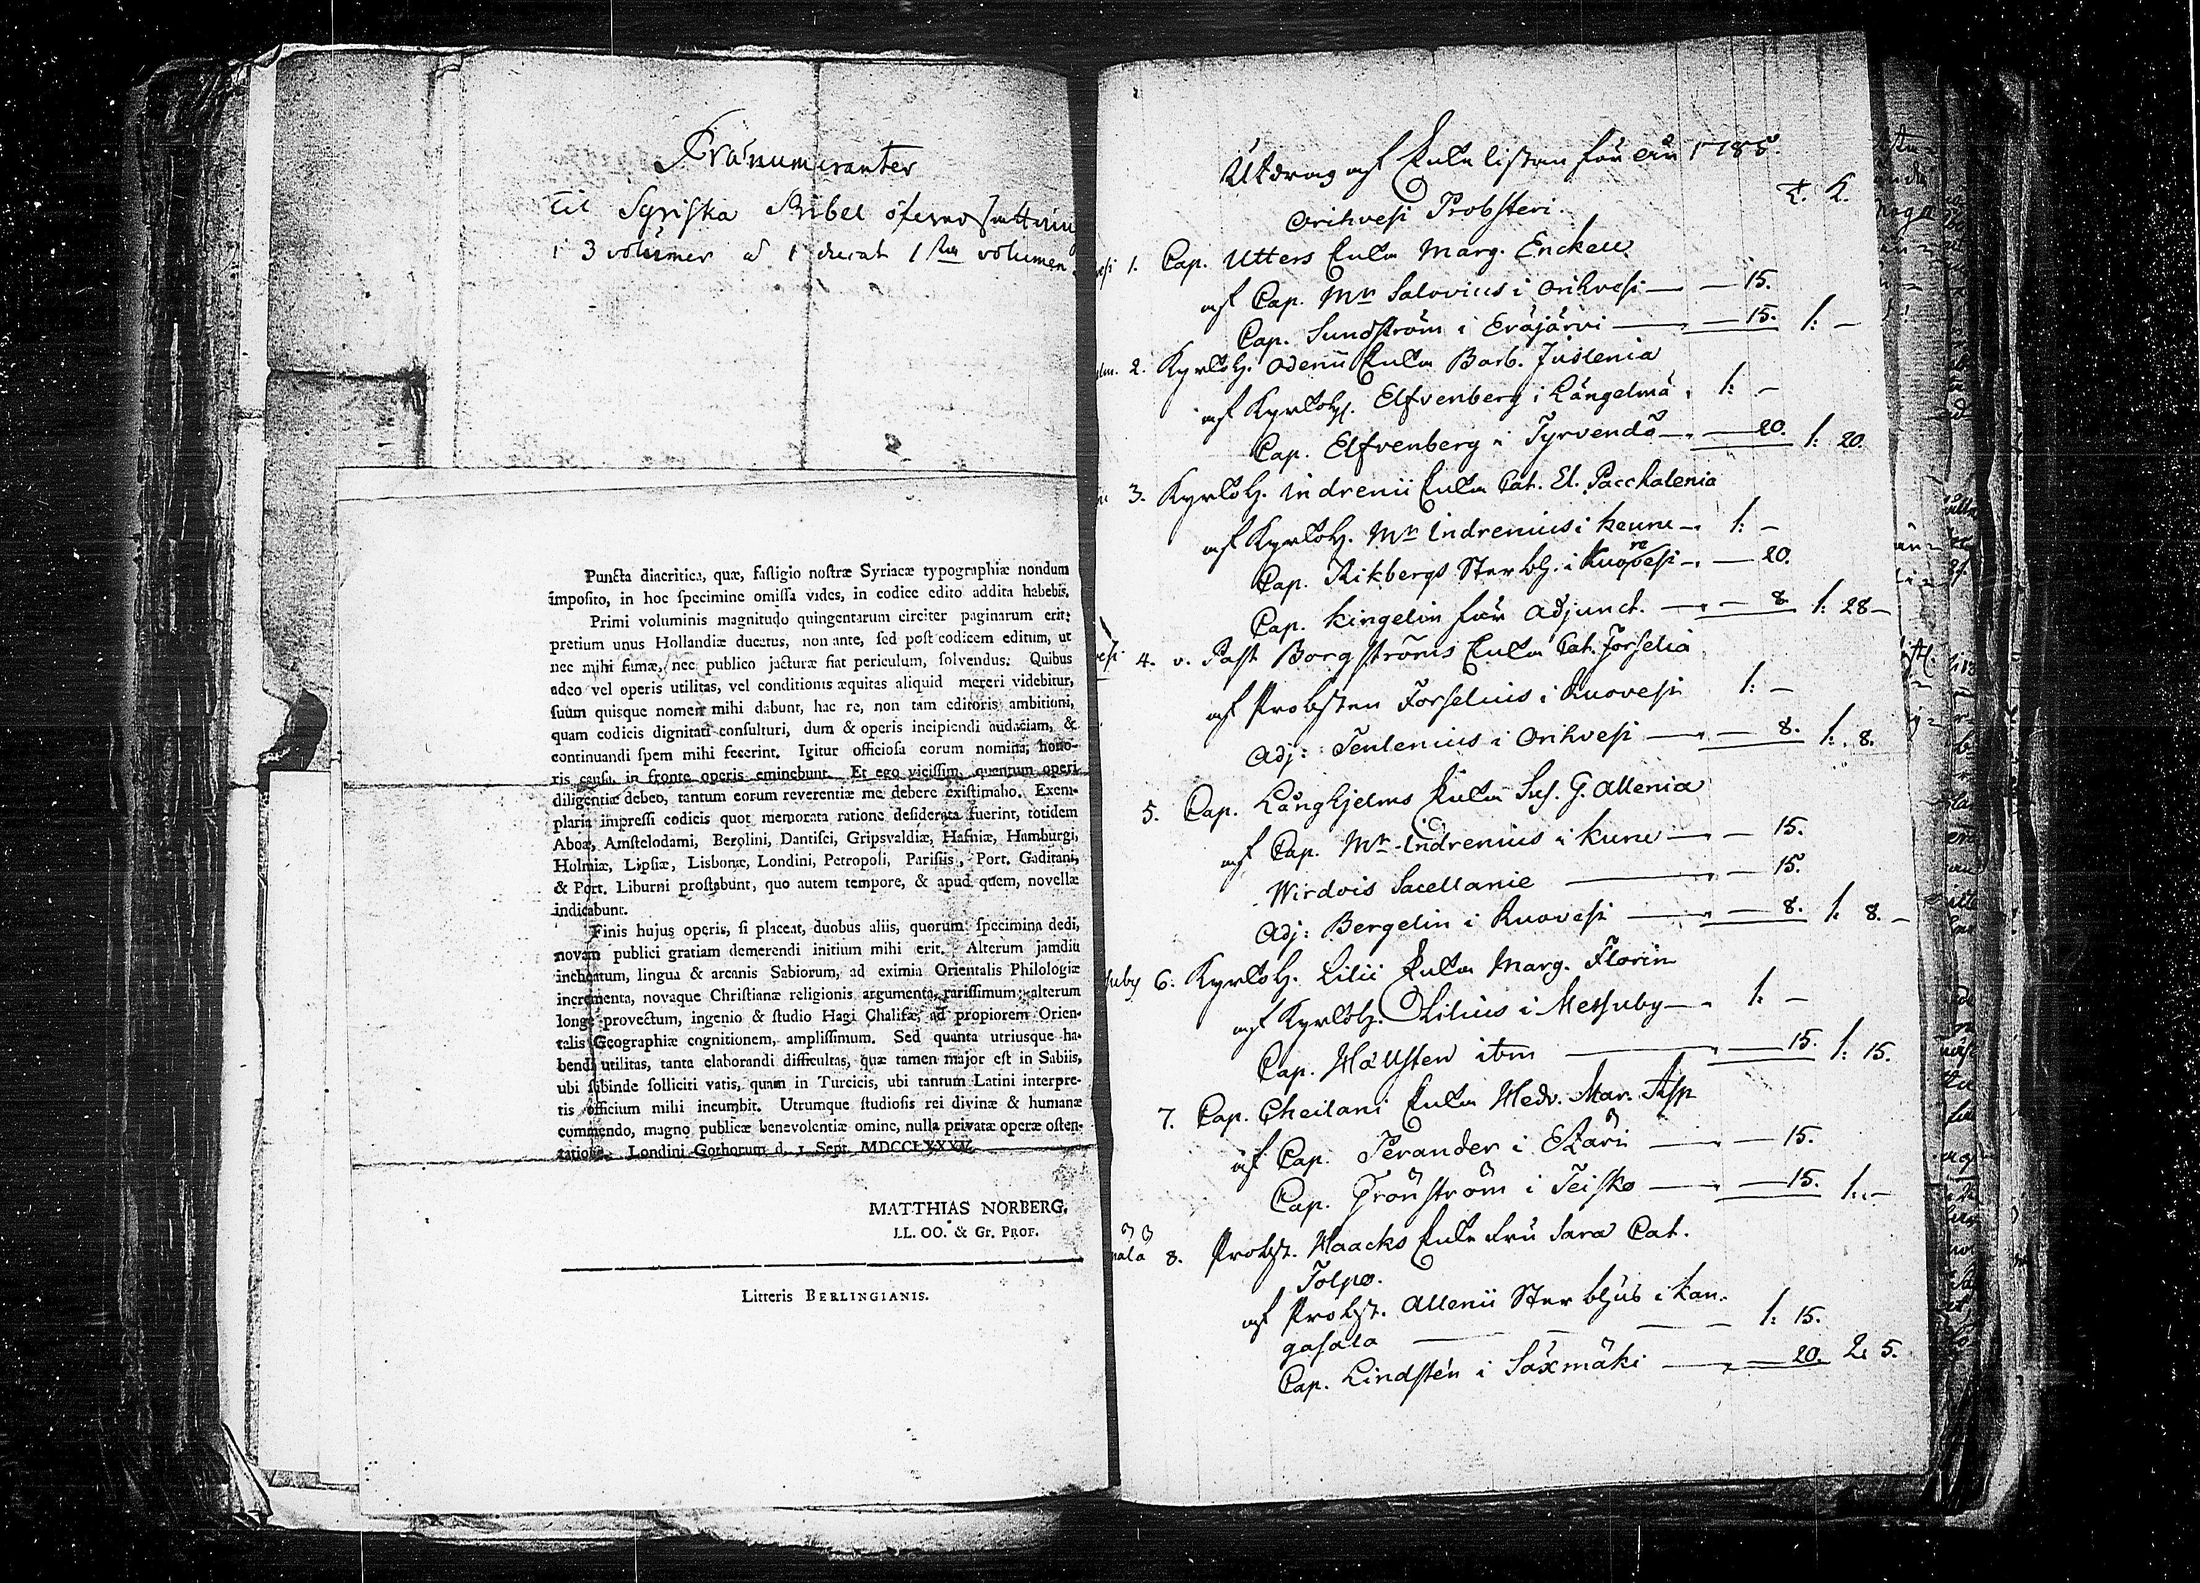 Prænumeranter
til Syriska Bibel öfversättning
i 3 volumer a 1 ducat 1sta volumen
Puncta diacritica, quæ, fastigio nostræ Syriacæ typographiæ nondum
imposito, in hoc specimine omissa vides, in codice edito addita habebis.
Primi voluminis magnitudo quingentarum circiter paginarum erit:
pretium unus Hollandiæ ducatus, non ante, sed post codicem editum, ut
nec mihi famæ, nec publico jacturæ fiat periculum, solvendus. Quibus
adeo vel operis utilitas, vel conditionis æquitas aliquid mereri videbitur,
suum quisque nomen mihi dabunt, hac re, non tam editoris ambitioni,
quam codicis dignitati consulturi, dum & operis incipiendi audaciam, &
continuandi spem mihi fecerint. Igitur officiosa eorum nomina, hono-
ris censu, in fronte operis eminebunt. Et ego vicissim, quantum operi
diligentiæ debeo, tantum eorum reverentiæ me debere existimabo. Exem-
plaria impressi codicis quot memorata ratione desiderata fuerint, totidem
Aboæ, Amstelodami, Berolini, Dantisci, Gripsvaldiæ, Hafniæ, Hamburgi,
Holmiæ, Lipsiæ, Lisbonæ, Londini, Petropoli, Parisiis, Port. Gaditani,
& Port. Liburni prostabunt, quo autem tempore, & apud quem, novellæ
indicabunt.
Finis hujus operis, si placeat, duobus aliis, quorum specimina dedi,
novam publici gratiam demerendi initium mihi erit. Alterum jamdiu
inchoatum, lingua & arcanis Sabiorum, ad eximia Orientalis Philologiæ
incrementa, novaque Christianæ religionis argumenta, rarissimum; alterum
longe provectum, ingenio & studio Hagi Chalifæ, ad propiorem Orien-
talis Geographiæ cognitionem, amplissimum. Sed quanta utriusque ha-
bendi utilitas, tanta elaborandi difficultas, quæ tamen major est in Sabiis,
ubi subinde solliciti vatis, quam in Turcicis, ubi tantum Latini interpre-
tis officium mihi incumbit. Utrumque studiosis rei divinæ & humanæ
commendo, magno publicæ benevolentiæ omine, nulla privatæ operæ osten-
tatione. Londini Gothorum d. 1 Sept. MDCCLXXXV.
MATTHIAS NORBERG.
LL. OO. & Gr. PROF.
Litteris BERLINGIANIS.
Utdrag af Enke listan för år 1785.
Orihvesi Probsteri.
1. Cap. Utters Enka Marg. Enckell
af Cap. Mr Salovius i Orihvesi — — 15.
Cap. Sundström i Eräjärvi — — 15. 1: —
2. Kyrkoh. Odenii Enka Barb. Juslenia
af Kyrkoh. Elfvenberg i Längelmä 1: —
Cap. Elfvenberg i Tyrvendö — — 20. 1: 20.
3. Kyrkoh. Indrenii Enka Cat. El. Pacchalenia
af Kyrkoh. Mr Indrenius i Keuru — 1: —
Cap. Rikbergs Sterbh. i Ruovesi — — 20.
Cap. Kingelin för Adjunct. — — 8. 1: 28 —
4. v. Past Borgströms Enka Cat. Forselia
af Probsten Forselius i Ruovesi 1: —
Adj: Tenlenius i Orihvesi — — 8. 1: 8.
5. Cap. Långhjelms Enka Sus. G. Allenia
af Cap. Mr Indrenius i Kuru — — 15.
Wirdois Sacellanie — — 15.
Adj: Bergelin i Ruovesi — — 8. 1: 8. —
6. Kyrkoh. Lilii Enka Marg. Florin
af Kyrkoh. Lilius i Messuby — 1: —
Cap. Hällsten ibm — — 15. 1: 15.
7. Cap. Cheilani Enka Hedv. Mar. Asp
af Cap. Perander i Etzäri — — 15.
Cap. Grönström i Teisko — — 15. 1: —
8. Probst. Haacks Enke Fru Sara Cat.
Tolpo.
af Probst. Allenii Sterbhus i Kan-
gasala — — — 1: 15.
Cap. Lindstén i Säxmäki — — 20. 2: 5.